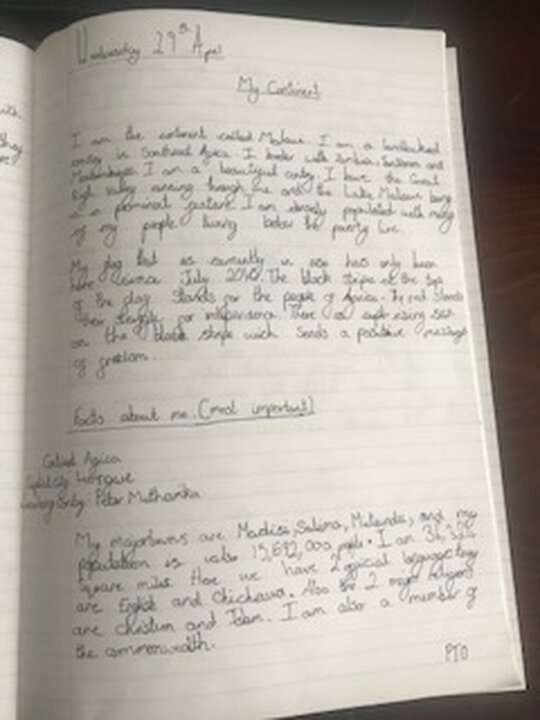 Wednesday 29th April
My Continent
I am the continent called Malawi. I am a landlocked
contry in Southeast Africa. I border with Zambia, Tanzania and
I am a beautiful contry. I have the Great
Rift valley running through me and the Lake Malawi being
a prominent feature. I am densely populated with many
of my people living below the poverty line.
My flag that is currently in use has only been
here since July 2010. The black stripe at the top
of the flag stands for the people of Africa. The red stands
their struggle for independence. There is a rising sun
on the black stripe wich sends a positive message
of freedom.
Facts about me (most important)
Africa
Peter Mutharika
My major towns are Salima, and my
population is 15,692,000 people. I am
square miles. Here we have 2 official languages they
are English and Chichewa. Also the 2 major religions
are christian and Islam. I am also a member of
the commonwealth.
PTO